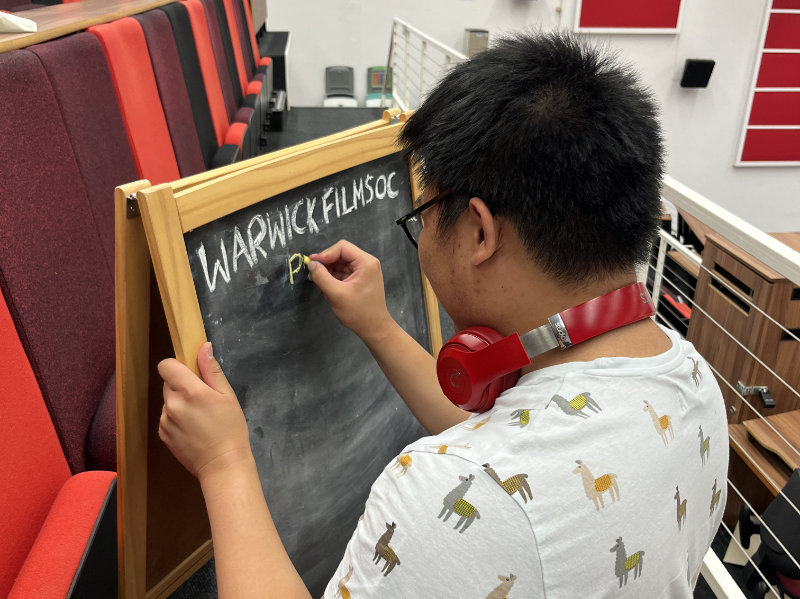 WARWICK FILMSOC
P